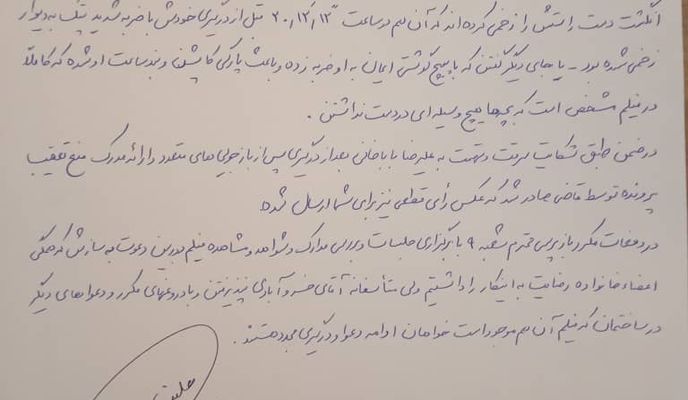 انگشت دست راستش را زخمی کرده اند که آن هم در ساعت ۲۰,۱۲,۱۳ قبل از درگیری خودش با ضربه شدید پتک به دیوار
زخمی شده بود - یا جای دیگر گفتن که با پیچ گوشتی ایمان به او ضربه زده و باعث پارگی کاپشن و بند ساعت او شده که کاملاً
در فیلم مشخص است که بچه ها هیچ وسیله ای در دست نداشتن .
در ضمن طبق شکایت سرقت و تهمت به علیرضا باباخانی بعد از درگیری پس از بازجویی های متعدد و ارائه مدرک منع تعقیب
پرونده توسط قاضی صادر شد که عکس رأی قطعی نیز برای شما ارسال شده
در دفعات مکرر بازپرس محترم شعبه ۹ با برگزاری جلسات و بررسی مدارک و شواهد و مشاهده فیلم دوربین دعوت به سازش که همگی
اعضاء خانواده رضایت به اینکار را داشتیم ولی متأسفانه آقای خسروآبادی نپذیرفتن و با دروغهای مکرر و دعواهای دیگر
در ساختمان که فیلم آن هم موجود است خواهان ادامه دعوا و درگیری مجدد هستند .